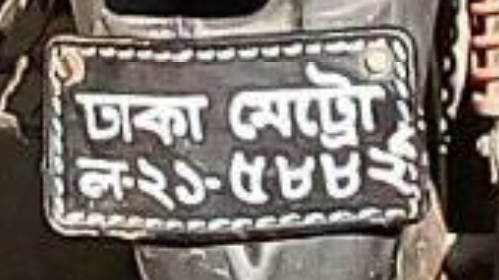 ঢাকা মেট্রো
ল-২১-৫৮৮২